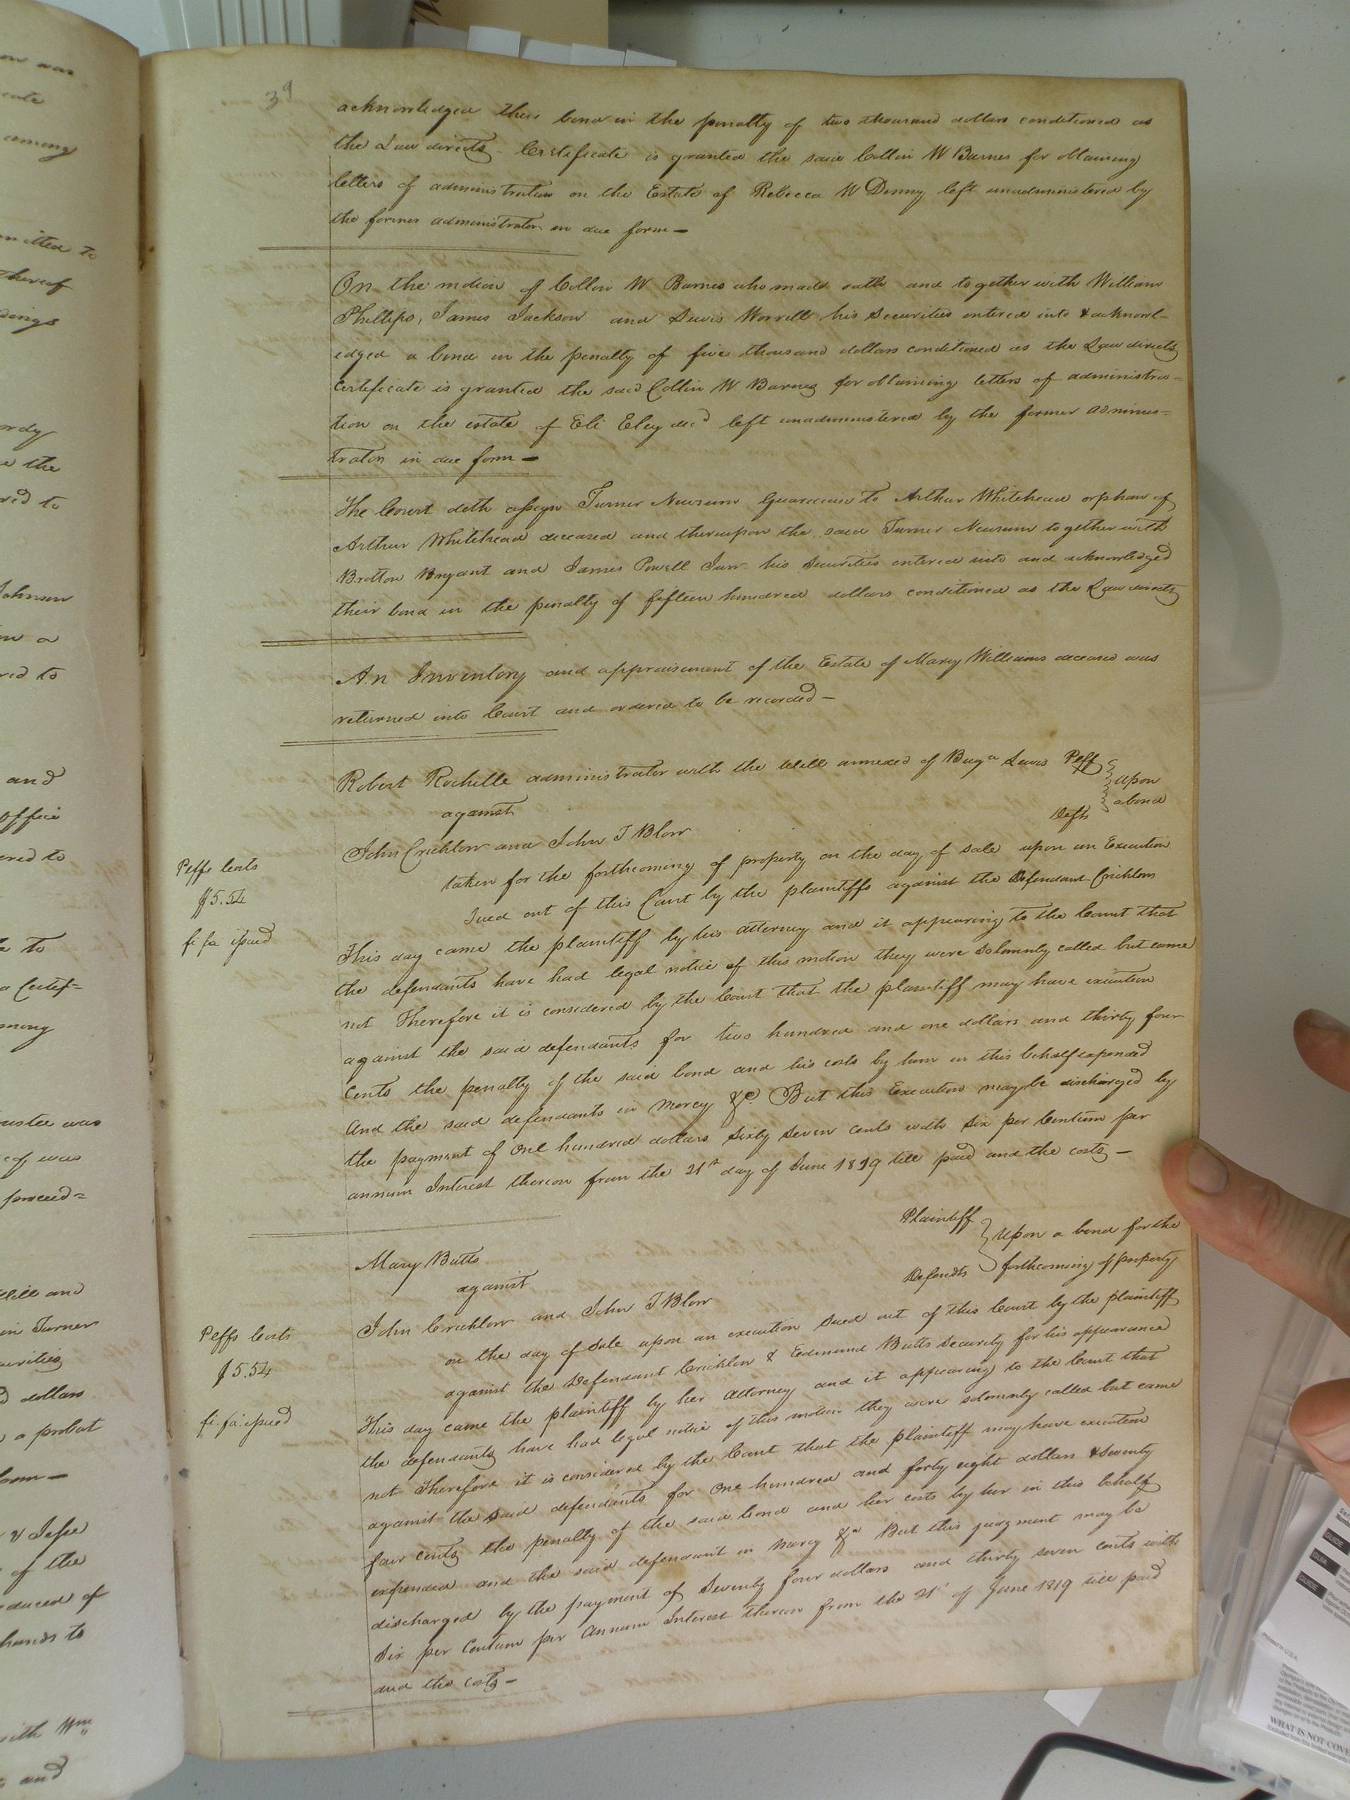 39
acknowledged their bond in the penalty of two thousand dollars conditioned as
the Law directs Certificate is granted the said Collin W Barnes for obtaining
letters of administration on the Estate of Rebecca W Denny left unadministered by
the former administrator in due form —
On the motion of Collin W Barnes who made oath and together with William
Phillips, James Jackson and Lewis Worrell his Securities entered into & acknowl-
edged a bond in the penalty of five thousand dollars conditioned as the Law directs
Certificate is granted the said Collin W Barnes for obtaining letters of administra-
tion on the estate of Eli Eley decd left unadministered by the former adminis=
trator in due form —
The Court doth assign Turner Newsum Guardian to Arthur Whitehead orphan of
Arthur Whitehead deceased and thereupon the said Turner Newsum together with
Britton Bryant and James Powell Junr his Securities entered into and acknowledged
their bond in the penalty of fifteen hundred dollars conditioned as the Law directs
An Inventory and appraisement of the Estate of Mary Williams deceased was
returned into Court and ordered to be recorded —
Robert Rochelle administrator with the Will annexed of Benja Lewis Peff
against
upon
a bond
Defts
John Crichlow and John T Blow
taken for the forthcoming of property on the day of sale upon an Execution
Sued out of this Court by the plaintiffs against the Defendant Crichlow
Peffs Costs
$5.54
fi fa issued
This day came the plaintiff by his attorney and it appearing to the Court that
the defendants have had legal notice of this motion they were Solemnly called but came
not Therefore it is considered by the Court that the plaintiff may have execution
against the said defendants for two hundred and one dollars and thirty four
Cents the penalty of the said bond and his costs by him in this behalf expended
And the said defendants in Mercy &c But this Execution may be discharged by
the payment of One hundred dollars Sixty Seven cents with Six per Centum per
annum Interest thereon from the 21st day of June 1819 till paid and the costs —
Mary Butts
Plaintiff
against
Upon a bond for the
forthcoming of property
Defendts
John Crichlow and John T Blow
on the day of Sale upon an execution Sued out of this Court by the plaintiff
against the Defendant Crichlow & Edmund Butts Security for his appearance
Peffs Costs
$5.54
fi. fa. issued
This day came the plaintiff by her attorney and it appearing to the Court that
the defendants have had legal notice of this motion they were solemnly called but came
not Therefore it is considered by the Court that the plaintiff may have execution
against the said defendants for One hundred and forty eight dollars & Seventy
four cents the penalty of the said bond and her costs by her in this behalf
expended and the said defendant in Mercy &c But this judgment may be
discharged by the payment of Seventy four dollars and thirty seven cents with
Six per Centum per Annum Interest thereon from the 21st of June 1819 till paid
and the costs —